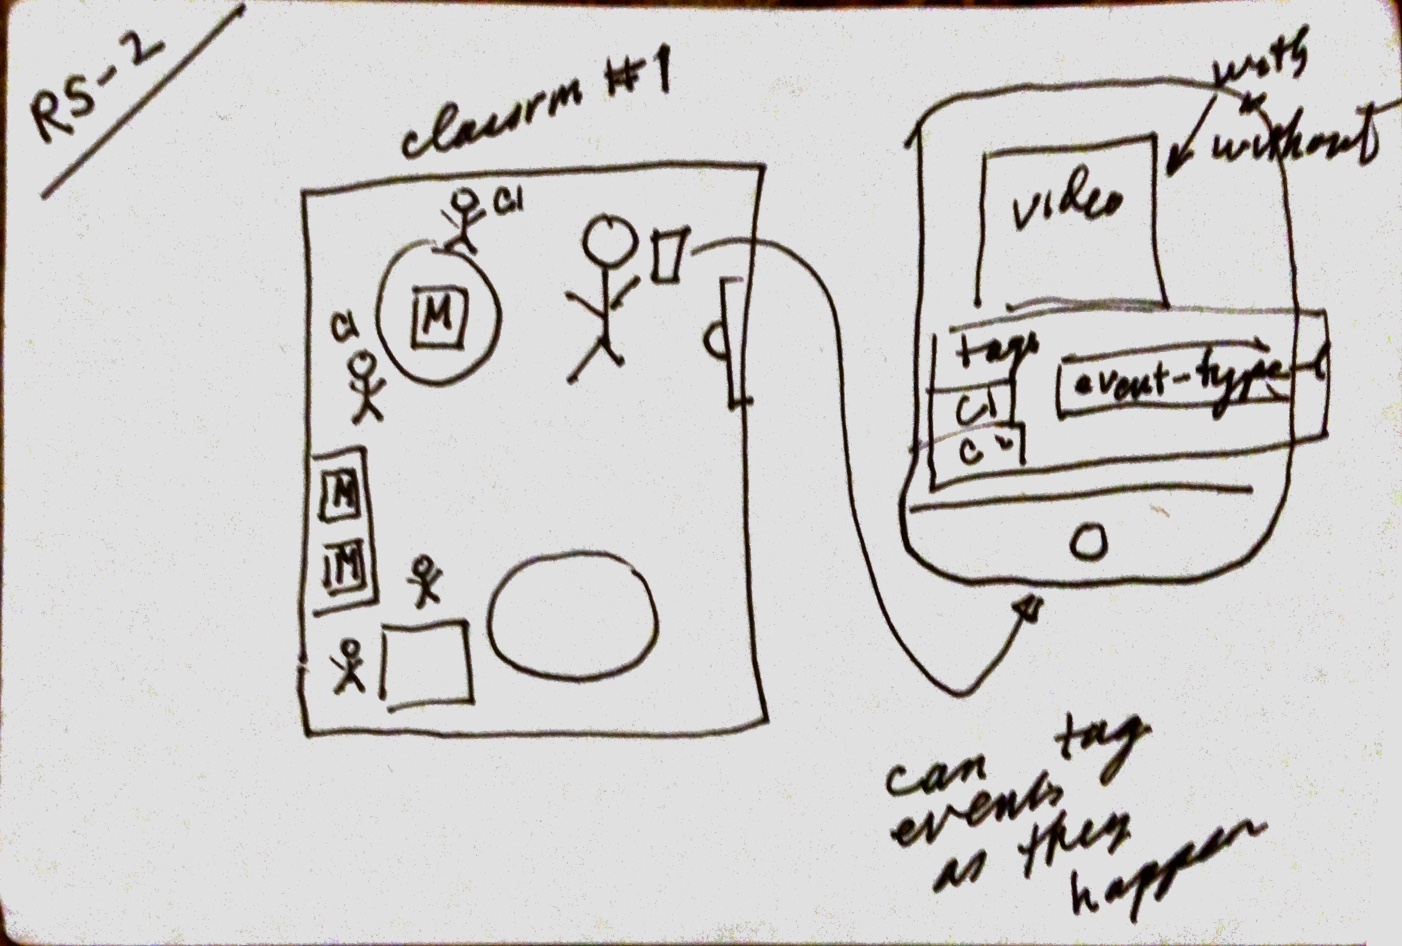 RS-2
classrm #1
C1
C1
M
M
M
with
without
video
tags
event-type
C1
can tag
events
as they
happen